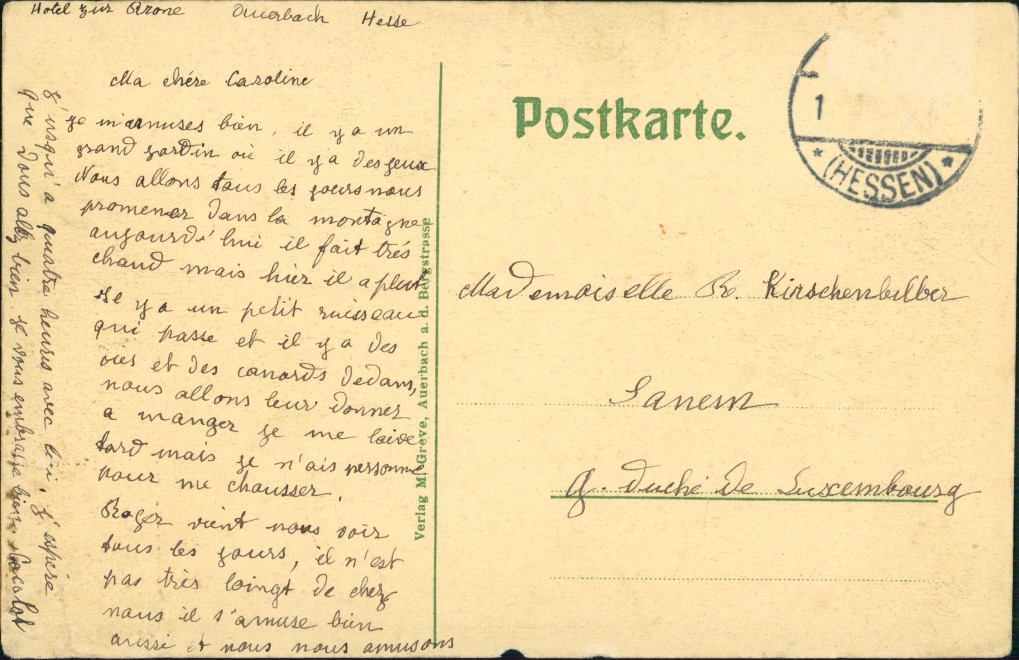 Hotel zur Krone Auerbach Hesse
Ma chére Caroline
Je m'amuses bien, il y a un
grand jardin où il y a des jeux
Nous allons tous les jours nous
promener dans la montagne
aujourd'hui il fait trés
chaud mais hier il a plut
Il y a un petit ruisseau
qui passe et il y a des
oies et des canards dedans,
nous allons leur donner
a manger je me lave
tard mais je n'ais personne
pour me chausser.
Roger vient nous voir
tous les jours, il n'est
pas très loingt de chez
nous il s'amuse bien
aussi et nous nous amusons
j'usqu'a quatre heures avec lui, j'éspére
que vous allez bien je vous embrasse bien
Verlag M. Greve, Auerbach a. d. Bergstrasse
Postkarte.
1
* (HESSEN) *
Mademoiselle R. Kirschenbilber
Sanem
G. Duché de Luxembourg